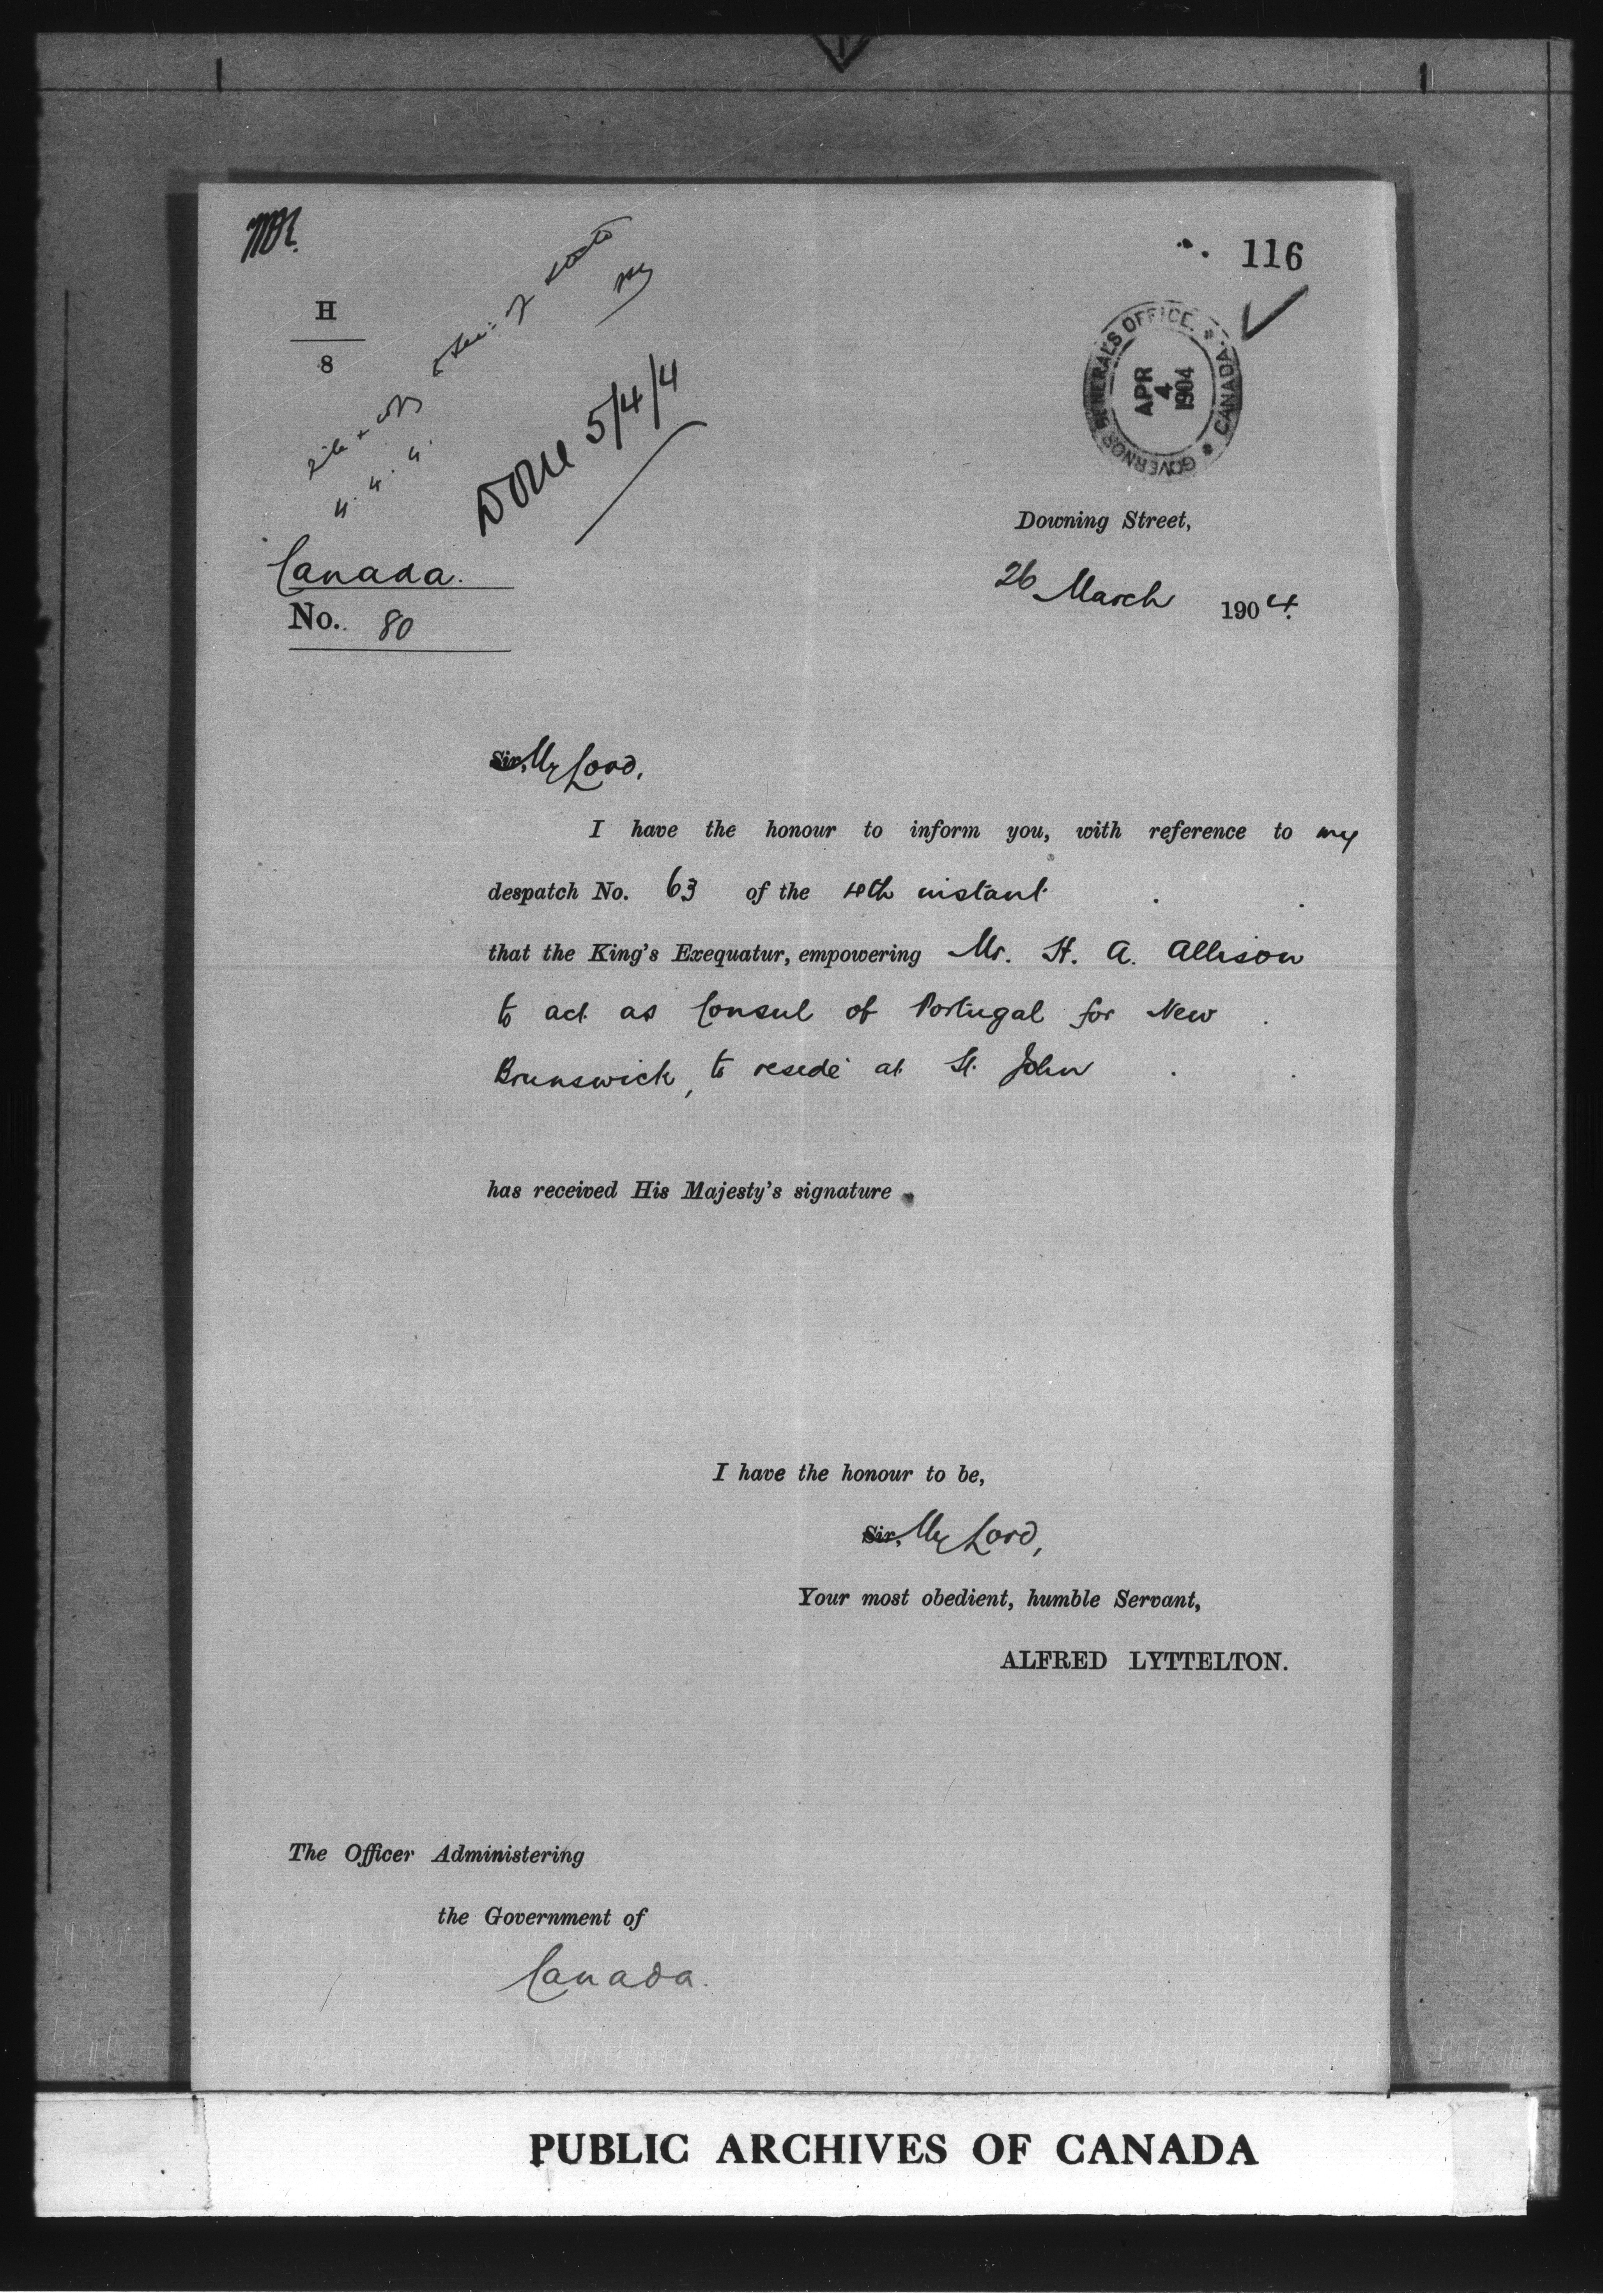 116
H
8
GOVERNOR GENERAL'S OFFICE. CANADA.
APR
4
1904
Done 5/4/4
Downing Street,
Canada.
26 March 1904.
No. 80
Sir, My Lord,
I have the honour to inform you, with reference to my
despatch No. 63 of the 10th instant
that the King's Exequatur, empowering Mr. H. A. Allison
to act as Consul of Portugal for New
Brunswick, to reside at St. John
has received His Majesty's signature.
I have the honour to be,
Sir, My Lord,
Your most obedient, humble Servant,
ALFRED LYTTELTON.
The Officer Administering
the Government of
Canada.
PUBLIC ARCHIVES OF CANADA